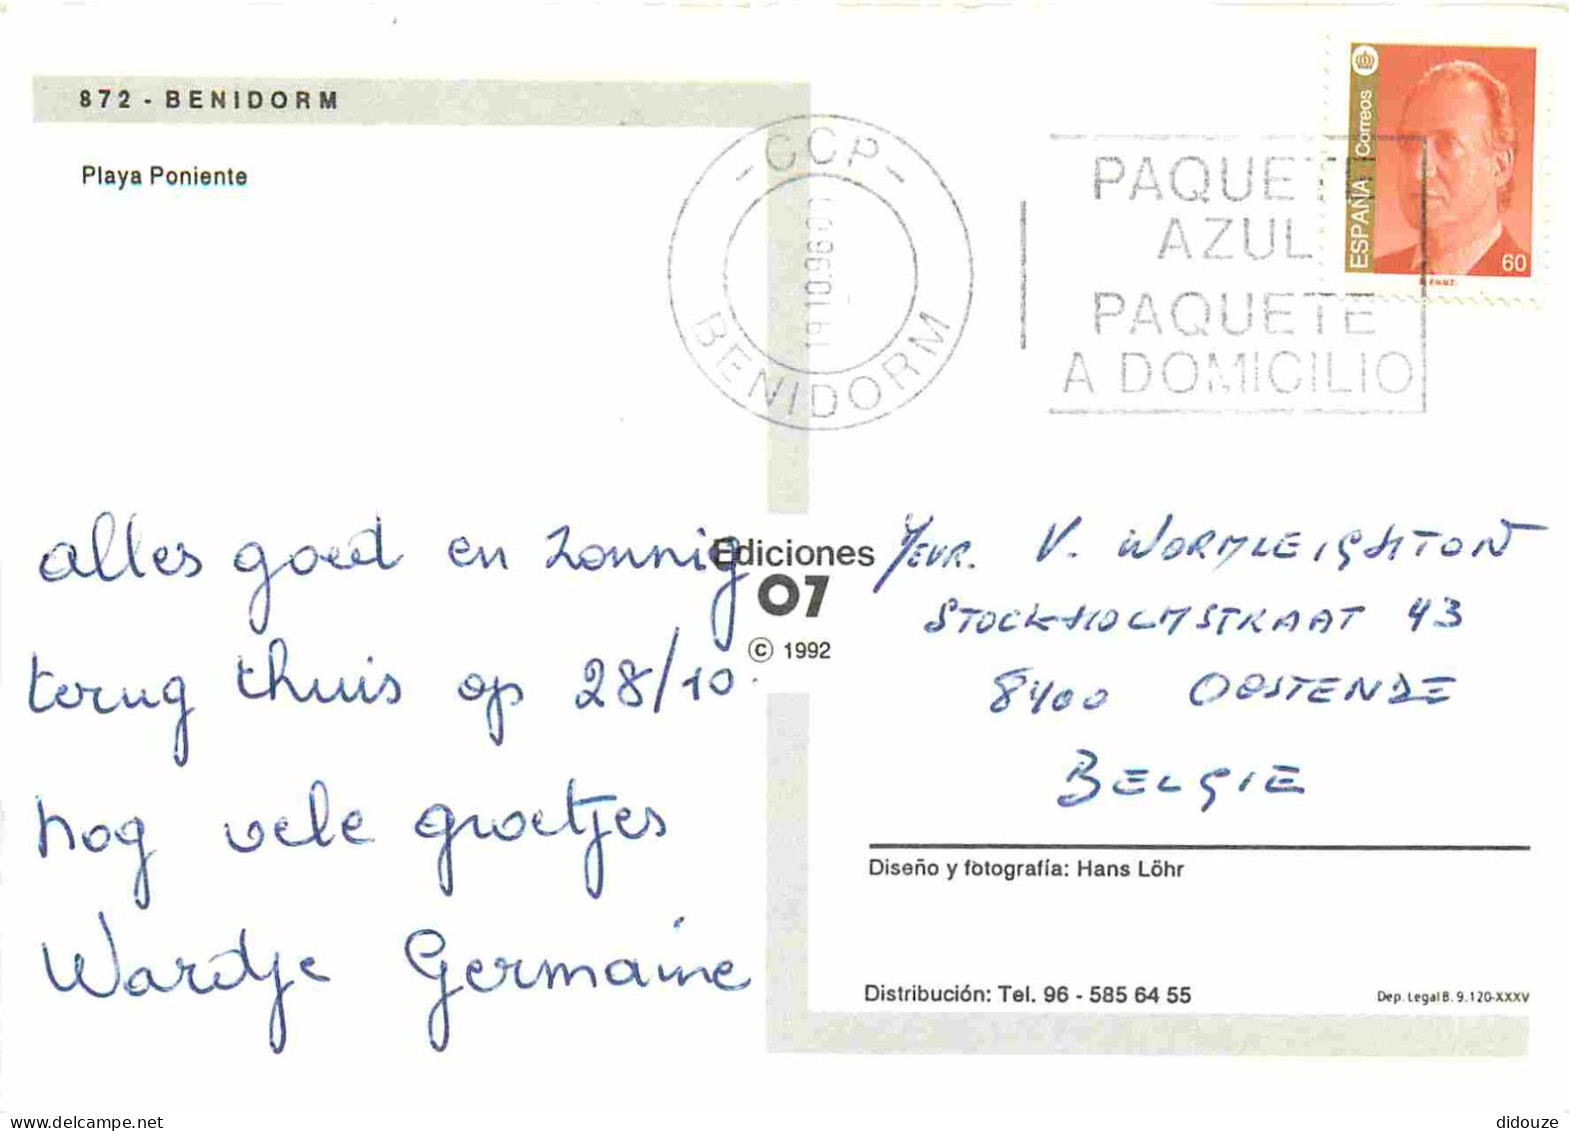 872 - BENIDORM
Playa Poniente
- CCP -
BENIDORM
19 10 96
PAQUETE
AZUL
PAQUETE
A DOMICILIO
ESPAÑA Correos
60
alles goed en zonnig
terug thuis op 28/10.
nog vele groetjes
Wardje Germaine
Ediciones
07
© 1992
Mevr. V. WORMLEIGHTON
STOCKHOLMSTRAAT 43
8400 OOSTENDE
BELGIE
Diseño y fotografía: Hans Löhr
Distribución: Tel. 96 - 585 64 55
Dep. Legal B. 9.120-XXXV
www.delcampe.net
didouze